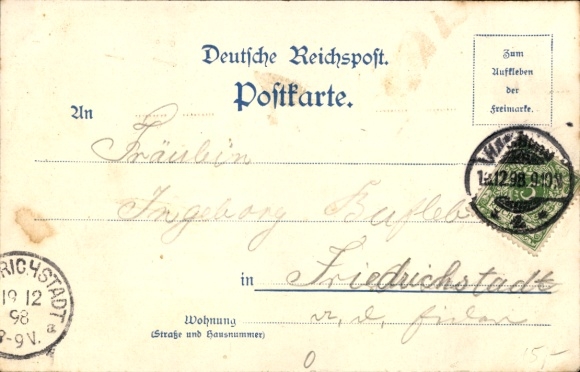 Deutsche Reichspost.
Postkarte.
Zum
Aufkleben
der
Freimarke.
An
Fräulein
Ingeborg
in Friedrichstadt
Wohnung
(Straße und Hausnummer)
12.98
RICHSTADT
19 12
98
-9V.
15,-